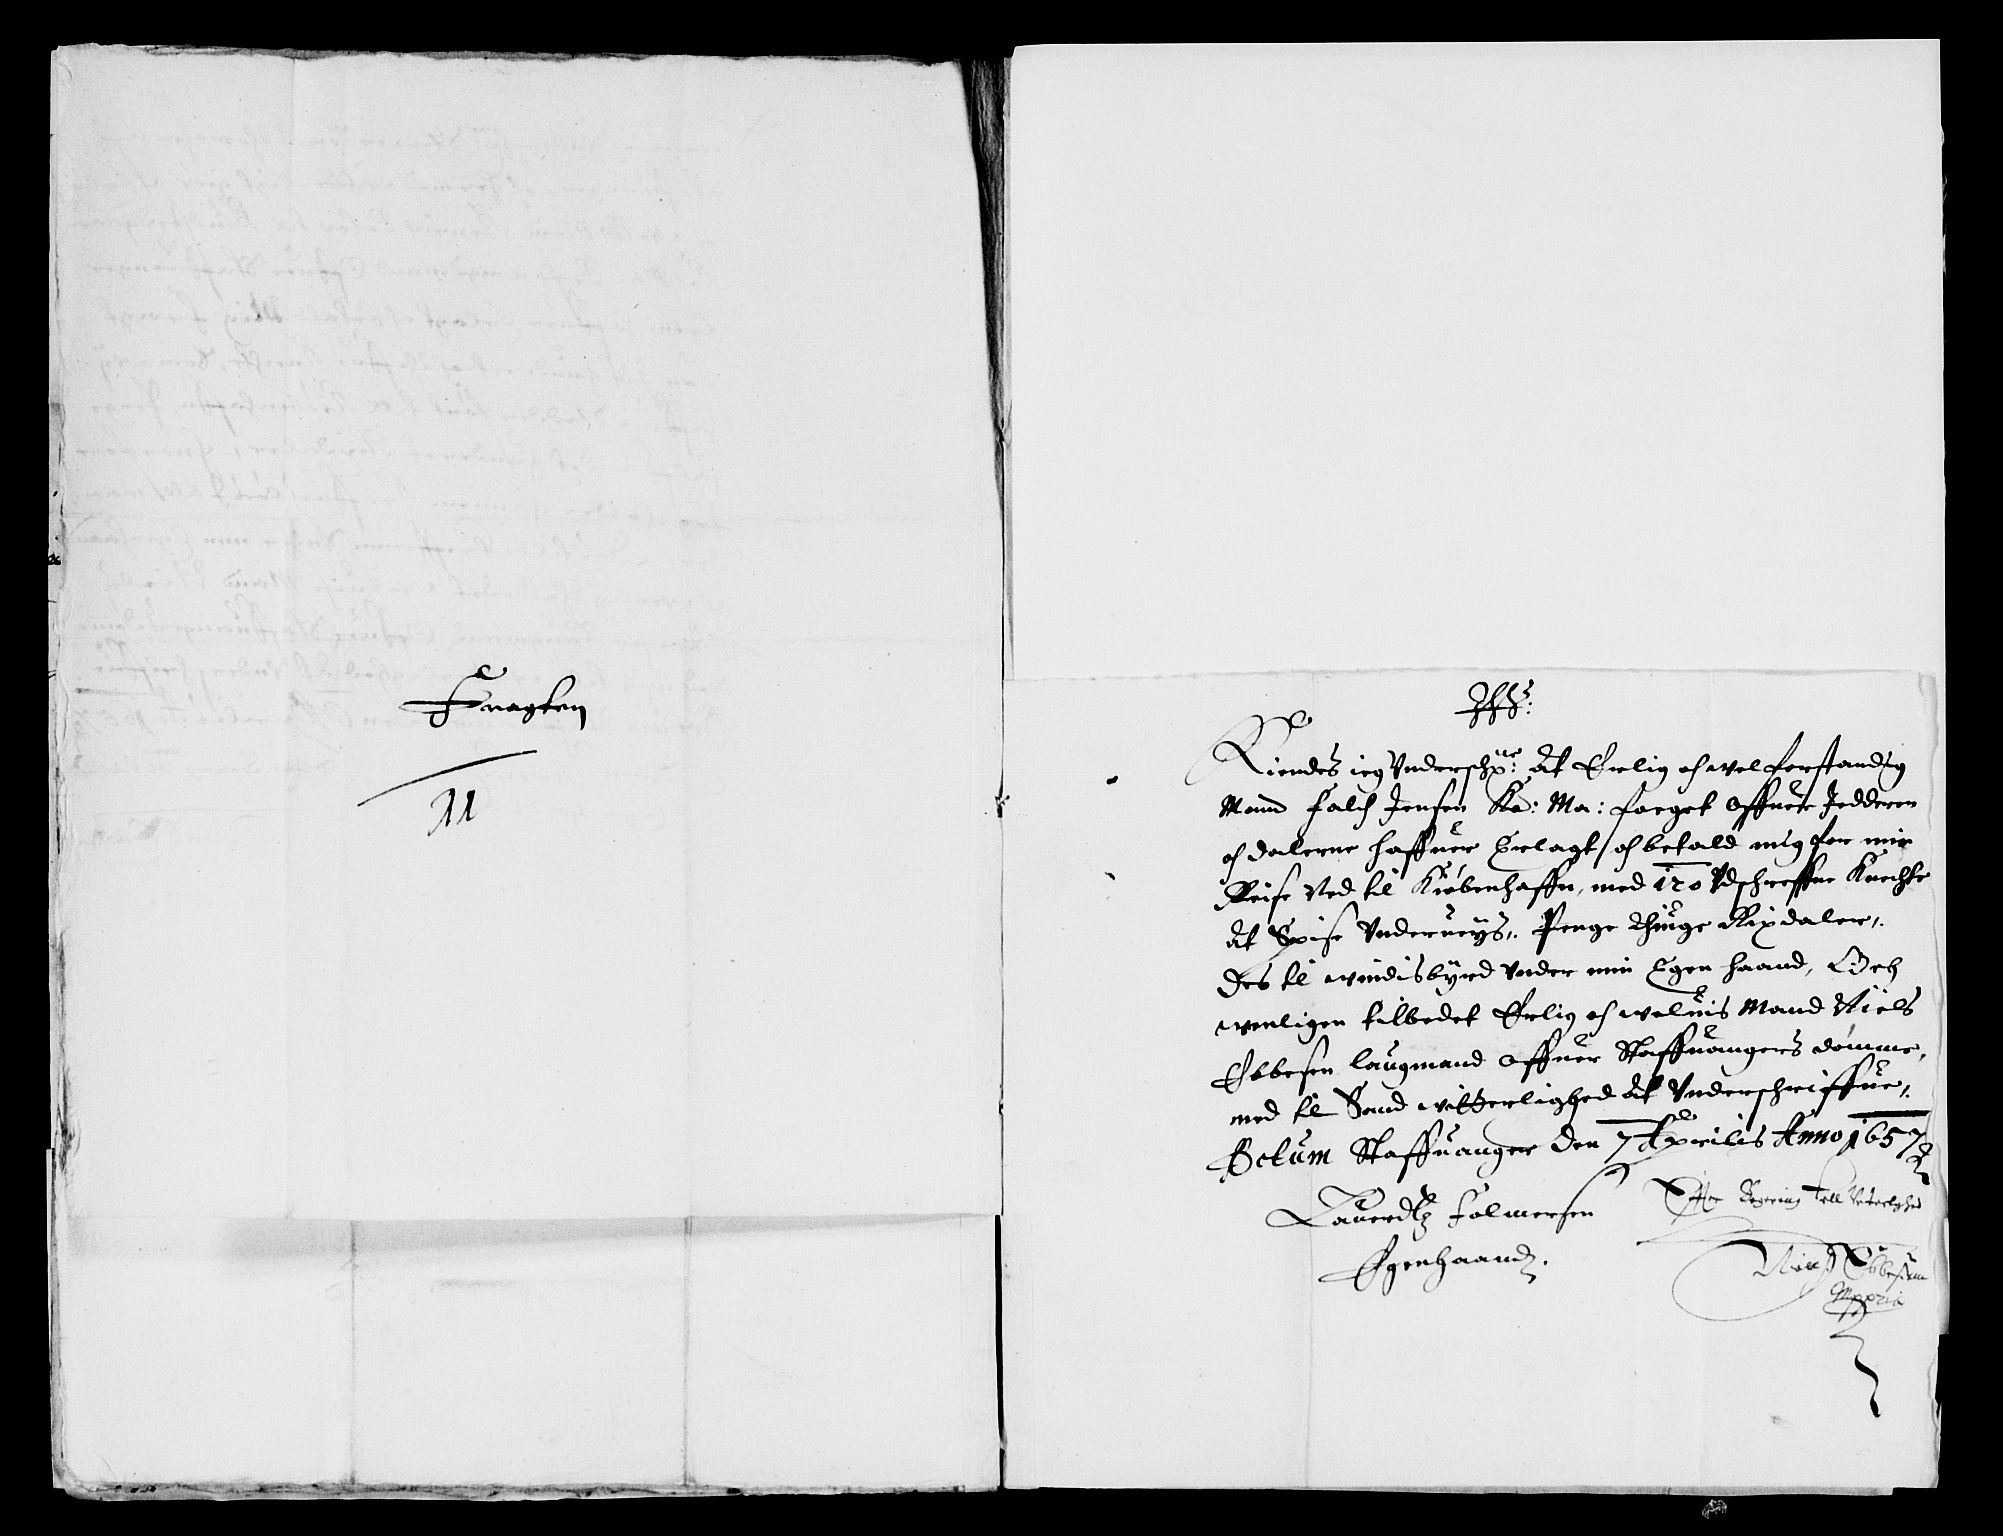 Fragten
11
Kiendes ieg Underschr: at Erlig och welforstandig
Mand Falch Jensen Ko: Ma: foeget offuer Jedderen
och dalerne haffuer Erlagt, och betald mig for min
Reise Ned til Kiøbenhaffn, med 120 Udschreffne Knechte
at Spise Underueÿs, Penge Rixdaler,
Des til windisbÿrd Under min Egen haand, Och
wenligen tilbedet Erlig och weluis Mand Niels
Ebbesen laugmand offuer Staffuangers domme,
med til Sand witterlighed at Underschriffue,
Actum Staffuanger Den 7 Aprilis Anno 1657
Lauerdtz Folmersen
Egenhaand
Efter Begering till Viterlighed
Niels Ebbesen
Mppria